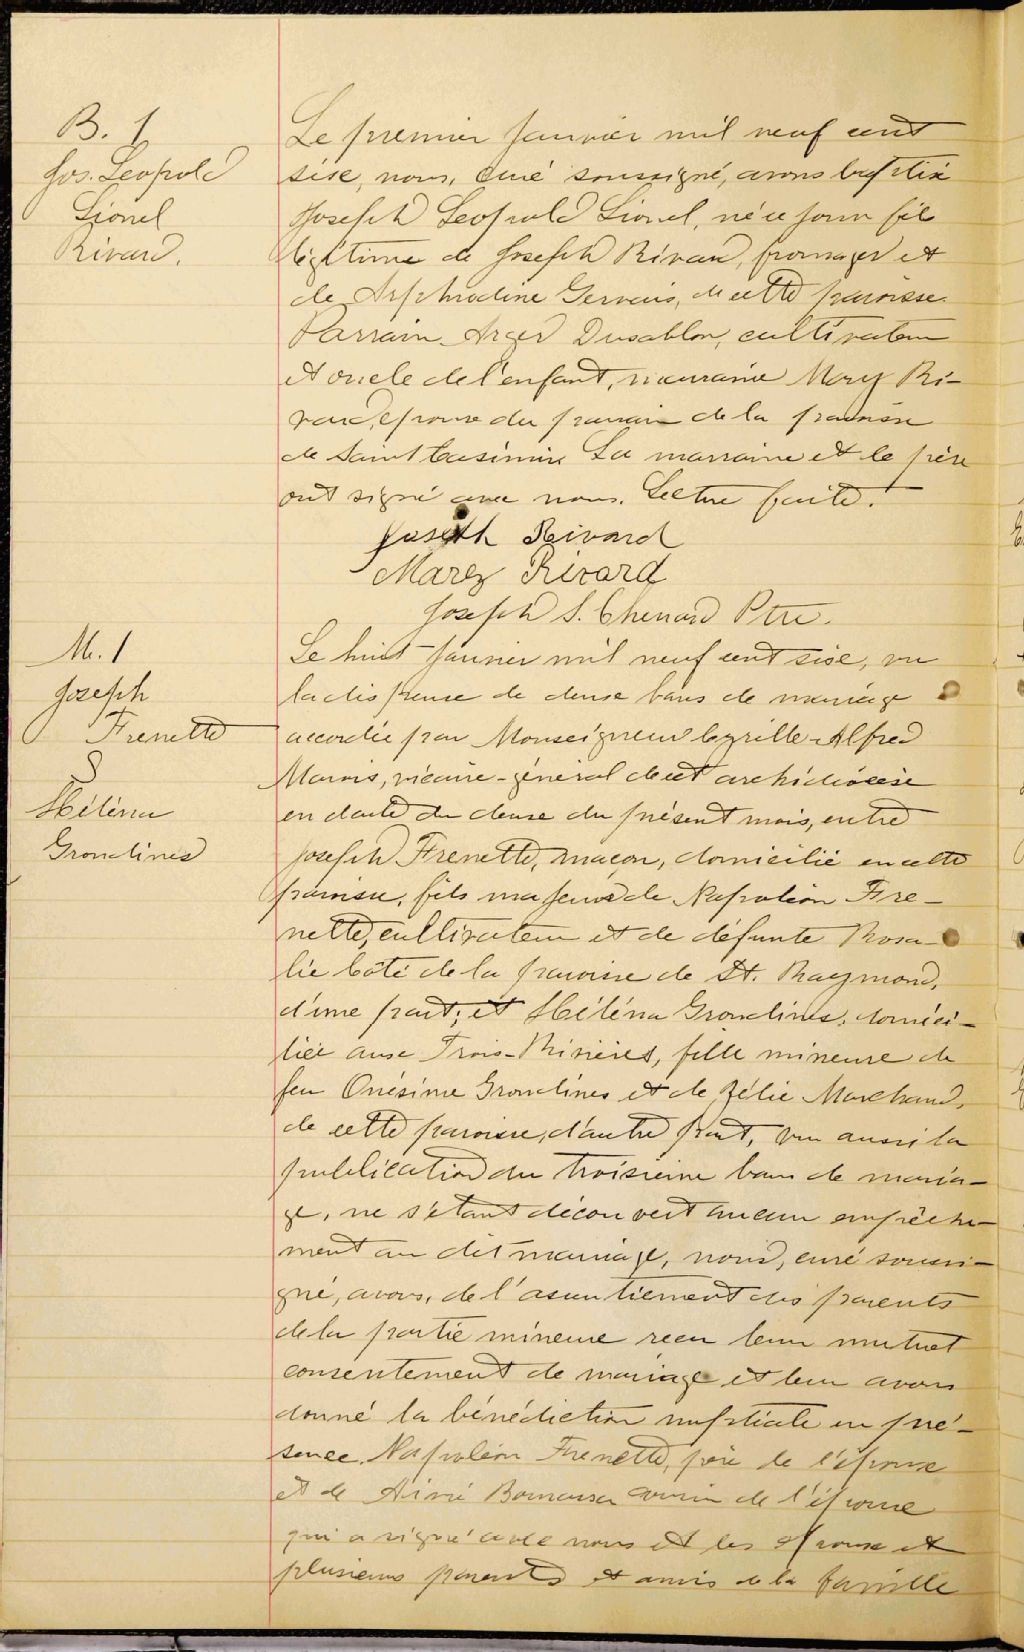 B. 1
Jos. Leopold
Lionel
Rivard.
Le premier janvier mil neuf cent
sise, nous, curé soussigné, avons baptisé
Joseph Leopold Lionel, né ce jour fils
légitime de Joseph Rivard, fromager et
de Arphrodine Gervais, de cette paroisse.
Parrain Arger Dusablon, cultivateur
et oncle de l'enfant, marraine Mary Ri-
vard, epouse du parrain de la paroisse
de Saint Casimire La marraine et le père
ont signé avec nous. Lecture faite.
Joseph Rivard
Marey Rivard
Joseph S. Chenard Ptre.
M. 1
Joseph
Frenette
&
Héléna
Grondines
Le huit janvier mil neuf cent sise, vu
la dispense de deuse bans de mariage
accordée par Monseigneur Cyrille-Alfred
Marois, vicaire-général de cet archidiocèse
en date du deuse du présent mois, entre
Joseph Frenette, maçon, domicilié en cette
paroisse, fils majeur de Napoléon Fre-
nette, cultivateur et de défunte Rosa-
lie Côté de la paroisse de St. Raymond,
d'une part; et Héléna Grondines, domici-
liée ause Trois-Rivières, fille mineure de
feu Onésime Grondines et de Zélie Marchand,
de cette paroisse, d'autre part, vu aussi la
publication du troisième bans de maria-
ge, ne s'étant découvert aucun empêche-
ment au dit mariage, nous, curé soussi-
gné, avons, de l'assentiement des parents
de la partie mineure recu leur mutuel
consentement de mariage et leur avons
donné la bénédiction nuptiale en pré-
sence Napoléon Frenette, père de l'épouse
et de Aimé cousin de l'épouse
qui a signé avec nous et les epouse et
plusieurs parents et amis de la famille